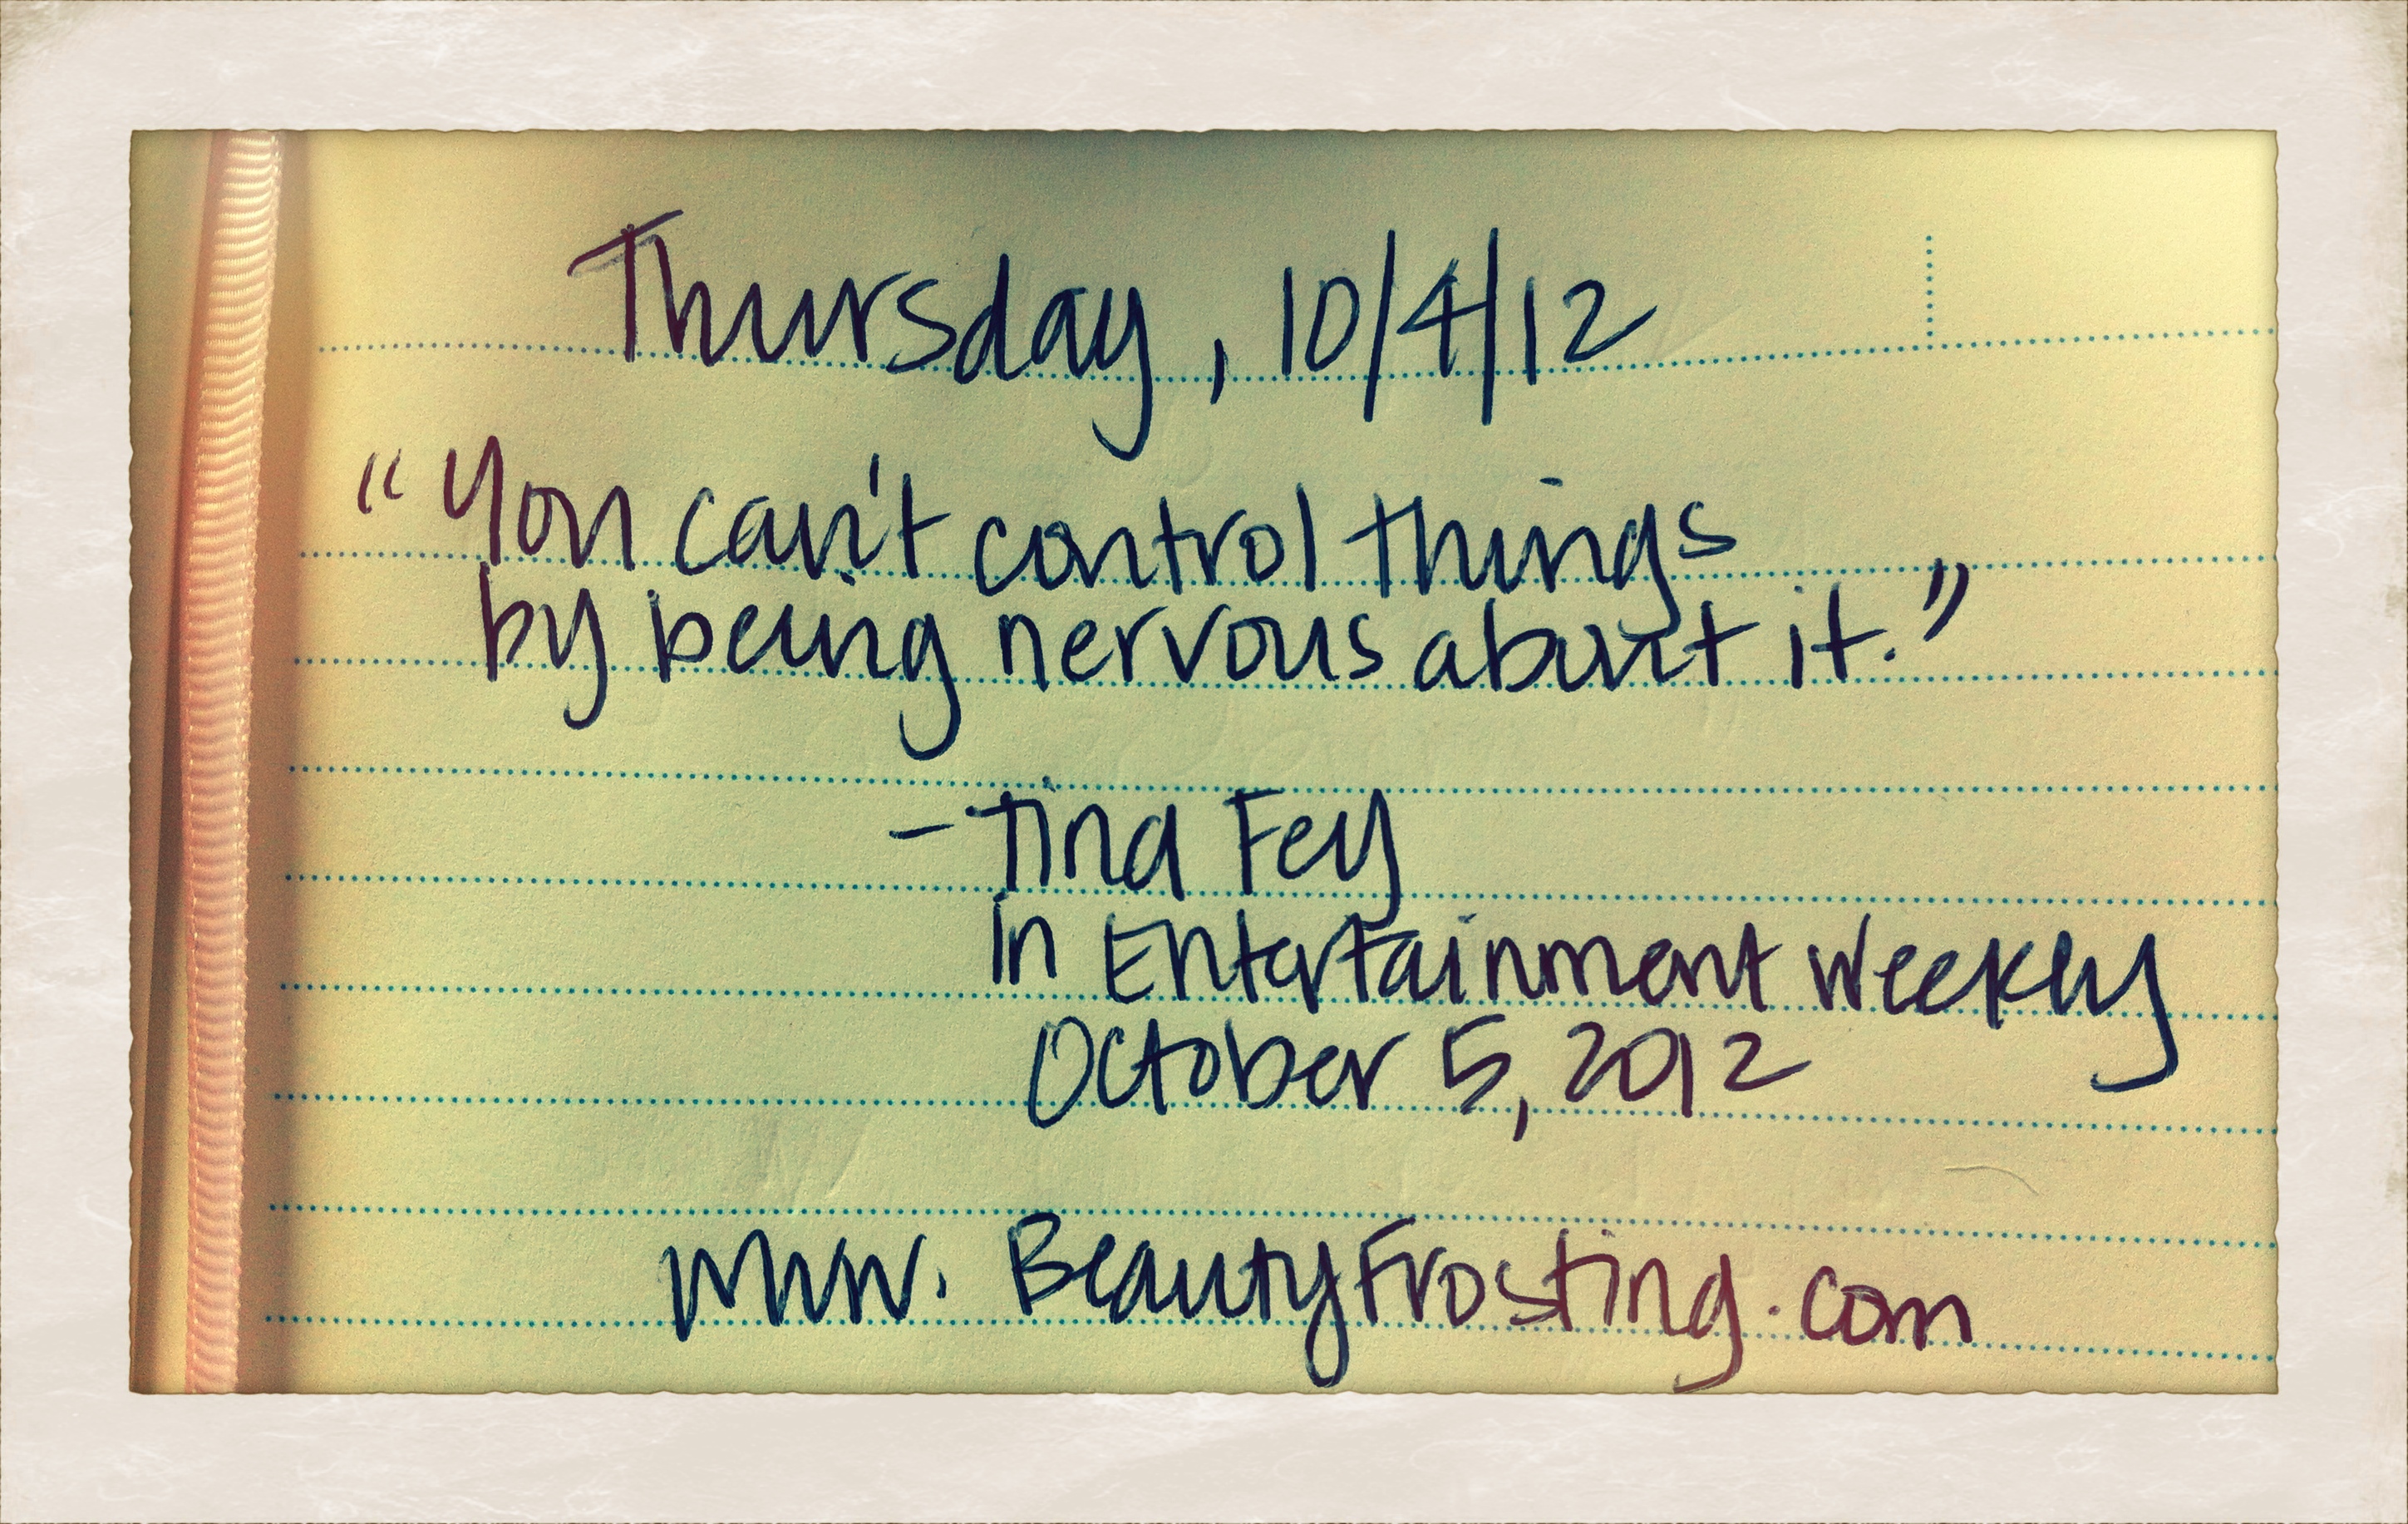 Thursday, 10/4/12
"You can't control things
by being nervous about it."
- Tina Fey
in Entertainment Weekly
October 5, 2012
www.BeautyFrosting.com